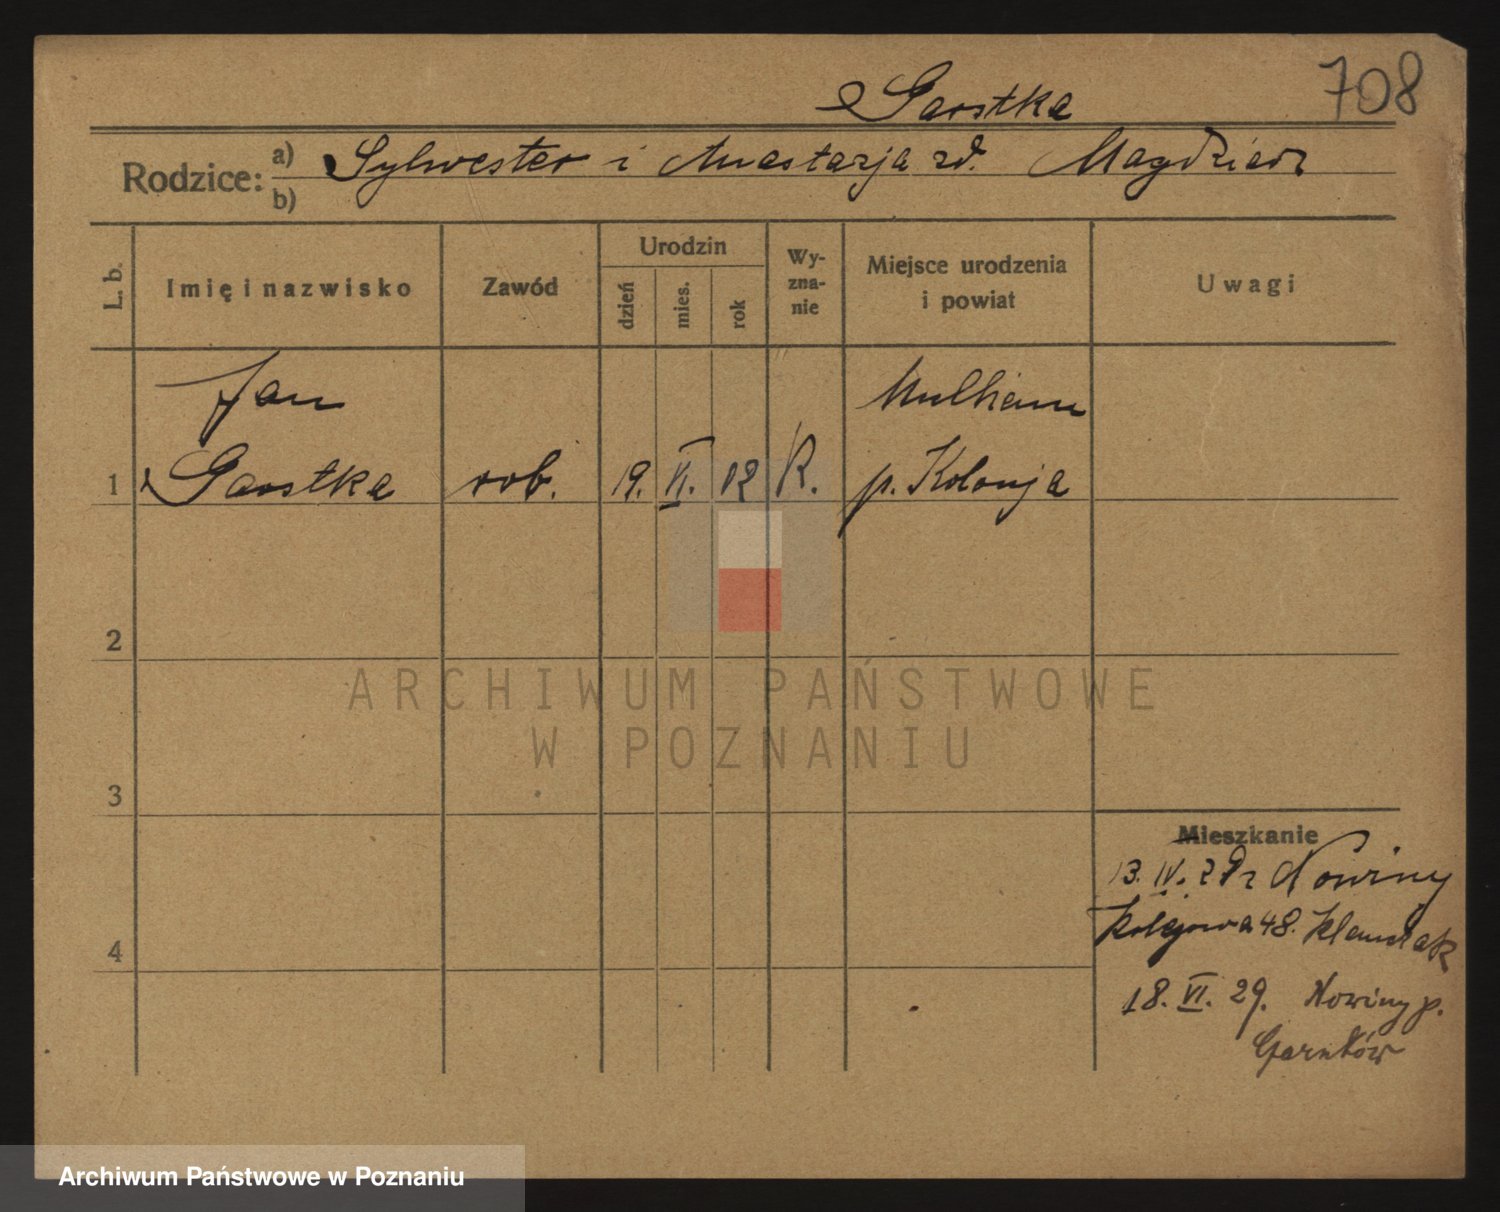 708
Garstka
Rodzice: a) Sylwester i Anastazja zd. Magdziarz
b)
L. b. Imię i nazwisko Zawód Urodzin dzień mies. rok Wyznanie Miejsce urodzenia i powiat Uwagi
Jan Mulheim
1 Garstka rob. 19. VI. 12 R. p. Kolonja
2
ARCHIWUM PAŃSTWOWE
W POZNANIU
3
Mieszkanie
13. IV. z Nowiny
4 Kolejowa 48. Klamczak
18. VI. 29. Nowiny p.
Czarnków
Archiwum Państwowe w Poznaniu